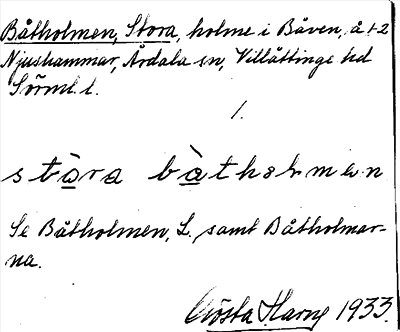 Båtholmen, Stora, holme i Båven, å 1-2
Njushammar, Årdala sn, Villåttinge hd
Sörml. l.
1.
stòra bàtholmen
Se Båtholmen, L. samt Båtholmar-
na.
Gösta Harng 1933.